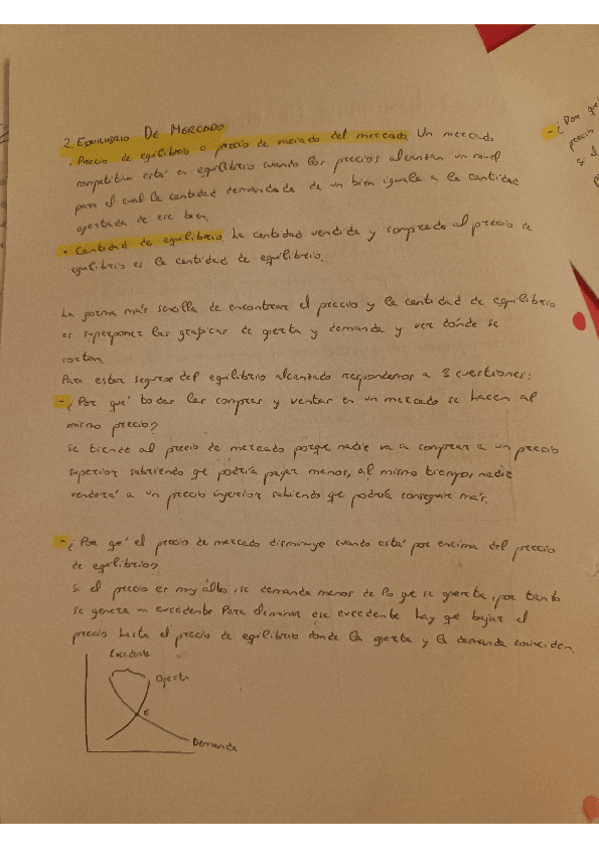 2. EQUILIBRIO DE MERCADO
• Precio de equilibrio o precio de vaciado del mercado. Un mercado
competitivo está en equilibrio cuando los precios alcanzan un nivel
para el cual la cantidad demandada de un bien iguala a la cantidad
ofertada de ese bien.
• Cantidad de equilibrio. La cantidad vendida y comprada al precio de
equilibrio es la cantidad de equilibrio.
La forma más sencilla de encontrar el precio y la cantidad de equilibrio
es superponer las graficas de oferta y demanda y ver dónde se
cortan
Para estar seguros del equilibrio alcanzado respondemos a 3 cuestiones:
- ¿Por qué todas las compras y ventas en un mercado se hacen al
mismo precio?
Se tiende al precio de mercado porque nadie va a comprar a un precio
superior sabiendo qe podría pagar menos, al mismo tiempo, nadie
venderá a un precio inferior sabiendo qe podría conseguir más.
- ¿Por qué el precio de mercado disminuye cuando está por encima del precio
de equilibrio?
Si el precio es muy alto, se demanda menos de lo qe se oferta, por tanto
se genera un excedente. Para eliminar ese excedente hay qe bajar el
precio hasta el precio de equilibrio donde la oferta y la demanda coinciden.
Excedente
Oferta
E
Demanda
- ¿Por qé
precio
si el